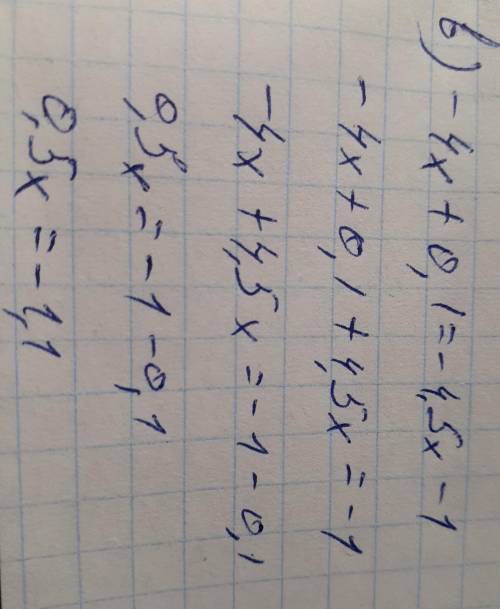 в) -4x + 0,1 = -4,5x - 1
-4x + 0,1 + 4,5x = -1
-4x + 4,5x = -1 - 0,1
0,5x = -1 - 0,1
0,5x = -1,1